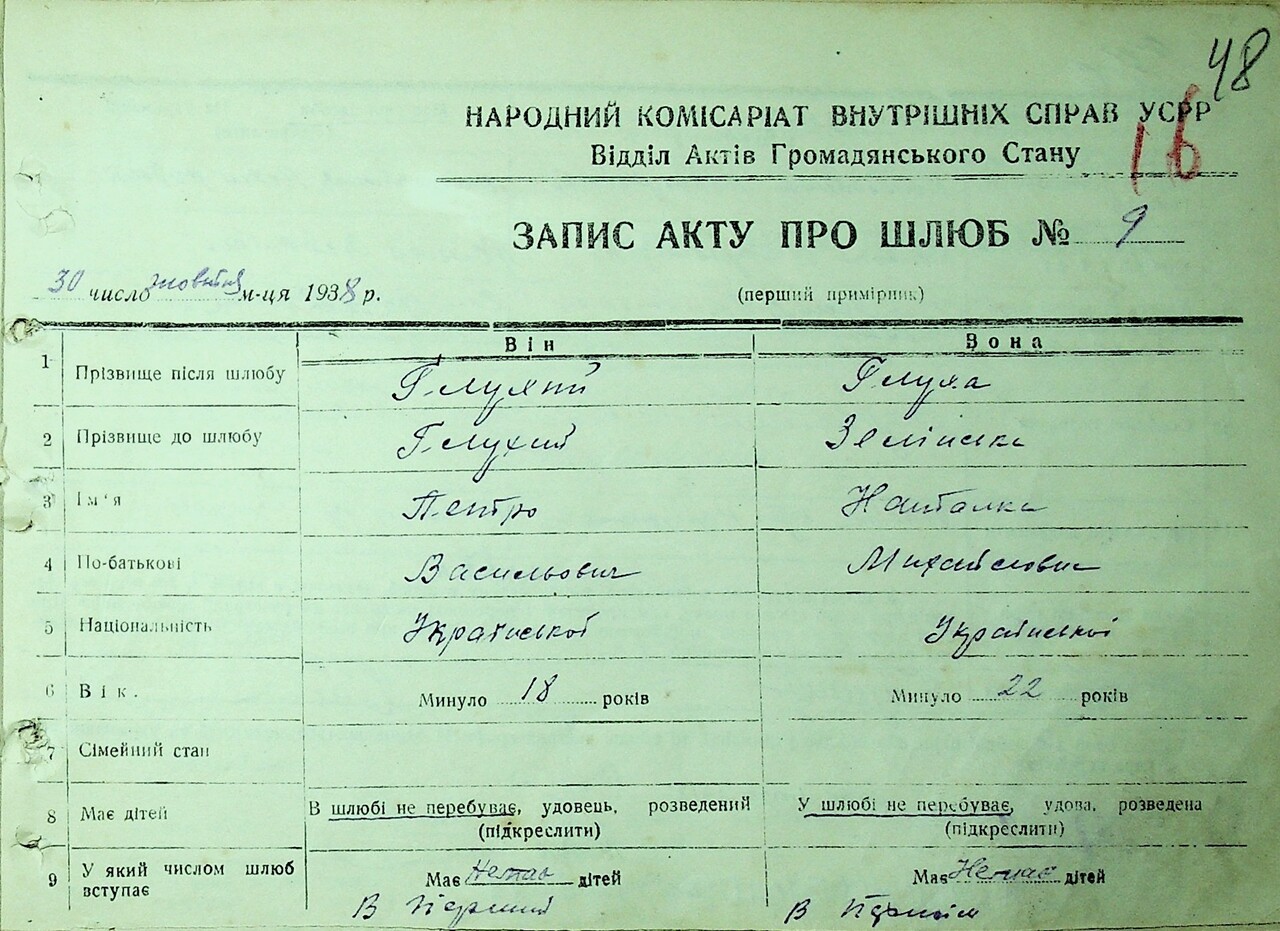 48
НАРОДНИЙ КОМІСАРІАТ ВНУТРІШНІХ СПРАВ УСРР
16
Відділ Актів Громадянського Стану
ЗАПИС АКТУ ПРО ШЛЮБ № 9
30 число жовтня м-ця 1938 р.
(перший примірник)
Він Вона
1 Прізвище після шлюбу Глухий Глуха
2 Прізвище до шлюбу Глухий Зелінська
3 Ім'я Петро Наталка
4 По-батькові Васильович Михайловна
5 Національність Української Української
6 Вік. Минуло 18 років Минуло 22 років
7 Сімейний стан
8 Має дітей В шлюбі не перебуває, удовець, розведений У шлюбі не перебуває, удова, розведена
(підкреслити) (підкреслити)
9 У який числом шлюб вступає Має Немає дітей Має Немає дітей
В Перший В